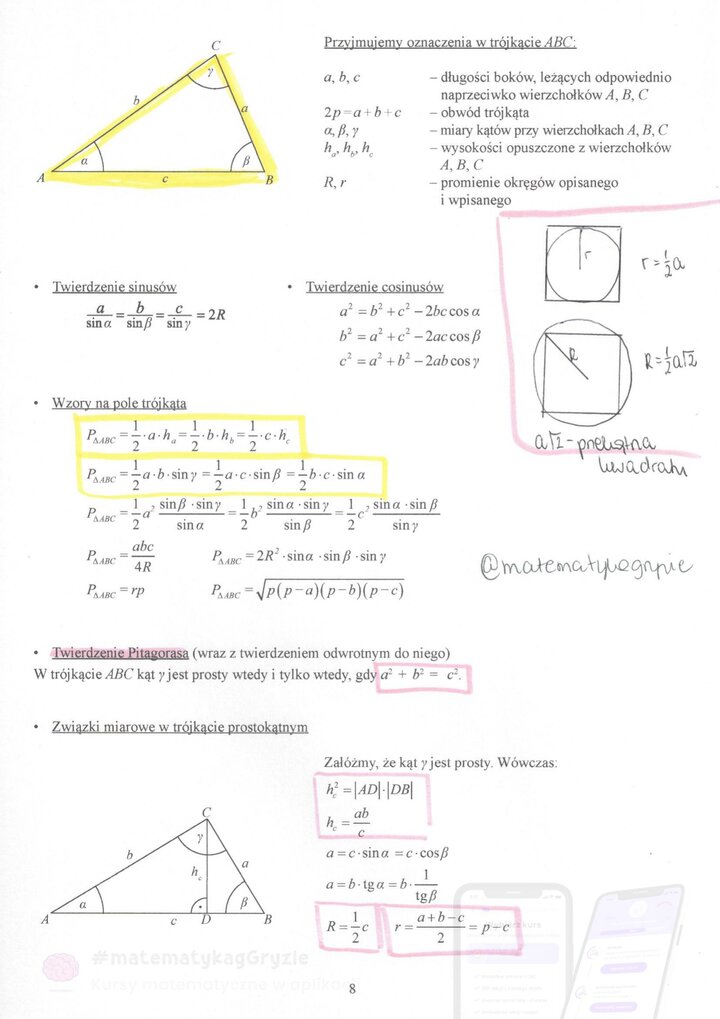 C
γ
b
a
α
β
A
c
B
Przyjmujemy oznaczenia w trójkącie ABC:
a, b, c – długości boków, leżących odpowiednio
naprzeciwko wierzchołków A, B, C
2p = a + b + c – obwód trójkąta
α, β, γ – miary kątów przy wierzchołkach A, B, C
hₐ, h_b, h_c – wysokości opuszczone z wierzchołków
A, B, C
R, r – promienie okręgów opisanego
i wpisanego
r
r = ½a
R
R = ½a√2
a√2 - przekątna
kwadratu
• Twierdzenie sinusów
a/sin α = b/sin β = c/sin γ = 2R
• Twierdzenie cosinusów
a² = b² + c² − 2bc cos α
b² = a² + c² − 2ac cos β
c² = a² + b² − 2ab cos γ
• Wzory na pole trójkąta
P_ΔABC = 1/2 · a · hₐ = 1/2 · b · h_b = 1/2 · c · h_c
P_ΔABC = 1/2 a · b · sin γ = 1/2 a · c · sin β = 1/2 b · c · sin α
P_ΔABC = 1/2 a² sin β · sin γ / sin α = 1/2 b² sin α · sin γ / sin β = 1/2 c² sin α · sin β / sin γ
P_ΔABC = abc/4R P_ΔABC = 2R² · sin α · sin β · sin γ
P_ΔABC = rp P_ΔABC = √p(p−a)(p−b)(p−c)
@matematykagryzie
• Twierdzenie Pitagorasa (wraz z twierdzeniem odwrotnym do niego)
W trójkącie ABC kąt γ jest prosty wtedy i tylko wtedy, gdy a² + b² = c².
• Związki miarowe w trójkącie prostokątnym
Załóżmy, że kąt γ jest prosty. Wówczas:
h_c² = |AD|·|DB|
h_c = ab/c
a = c · sin α = c · cos β
a = b · tg α = b · 1/tg β
R = 1/2 c r = a+b−c/2 = p − c
C
γ
b
a
h_c
α
β
A
c
D
B
#matematykagGryzie
Kursy matematyczne w aplikac
8